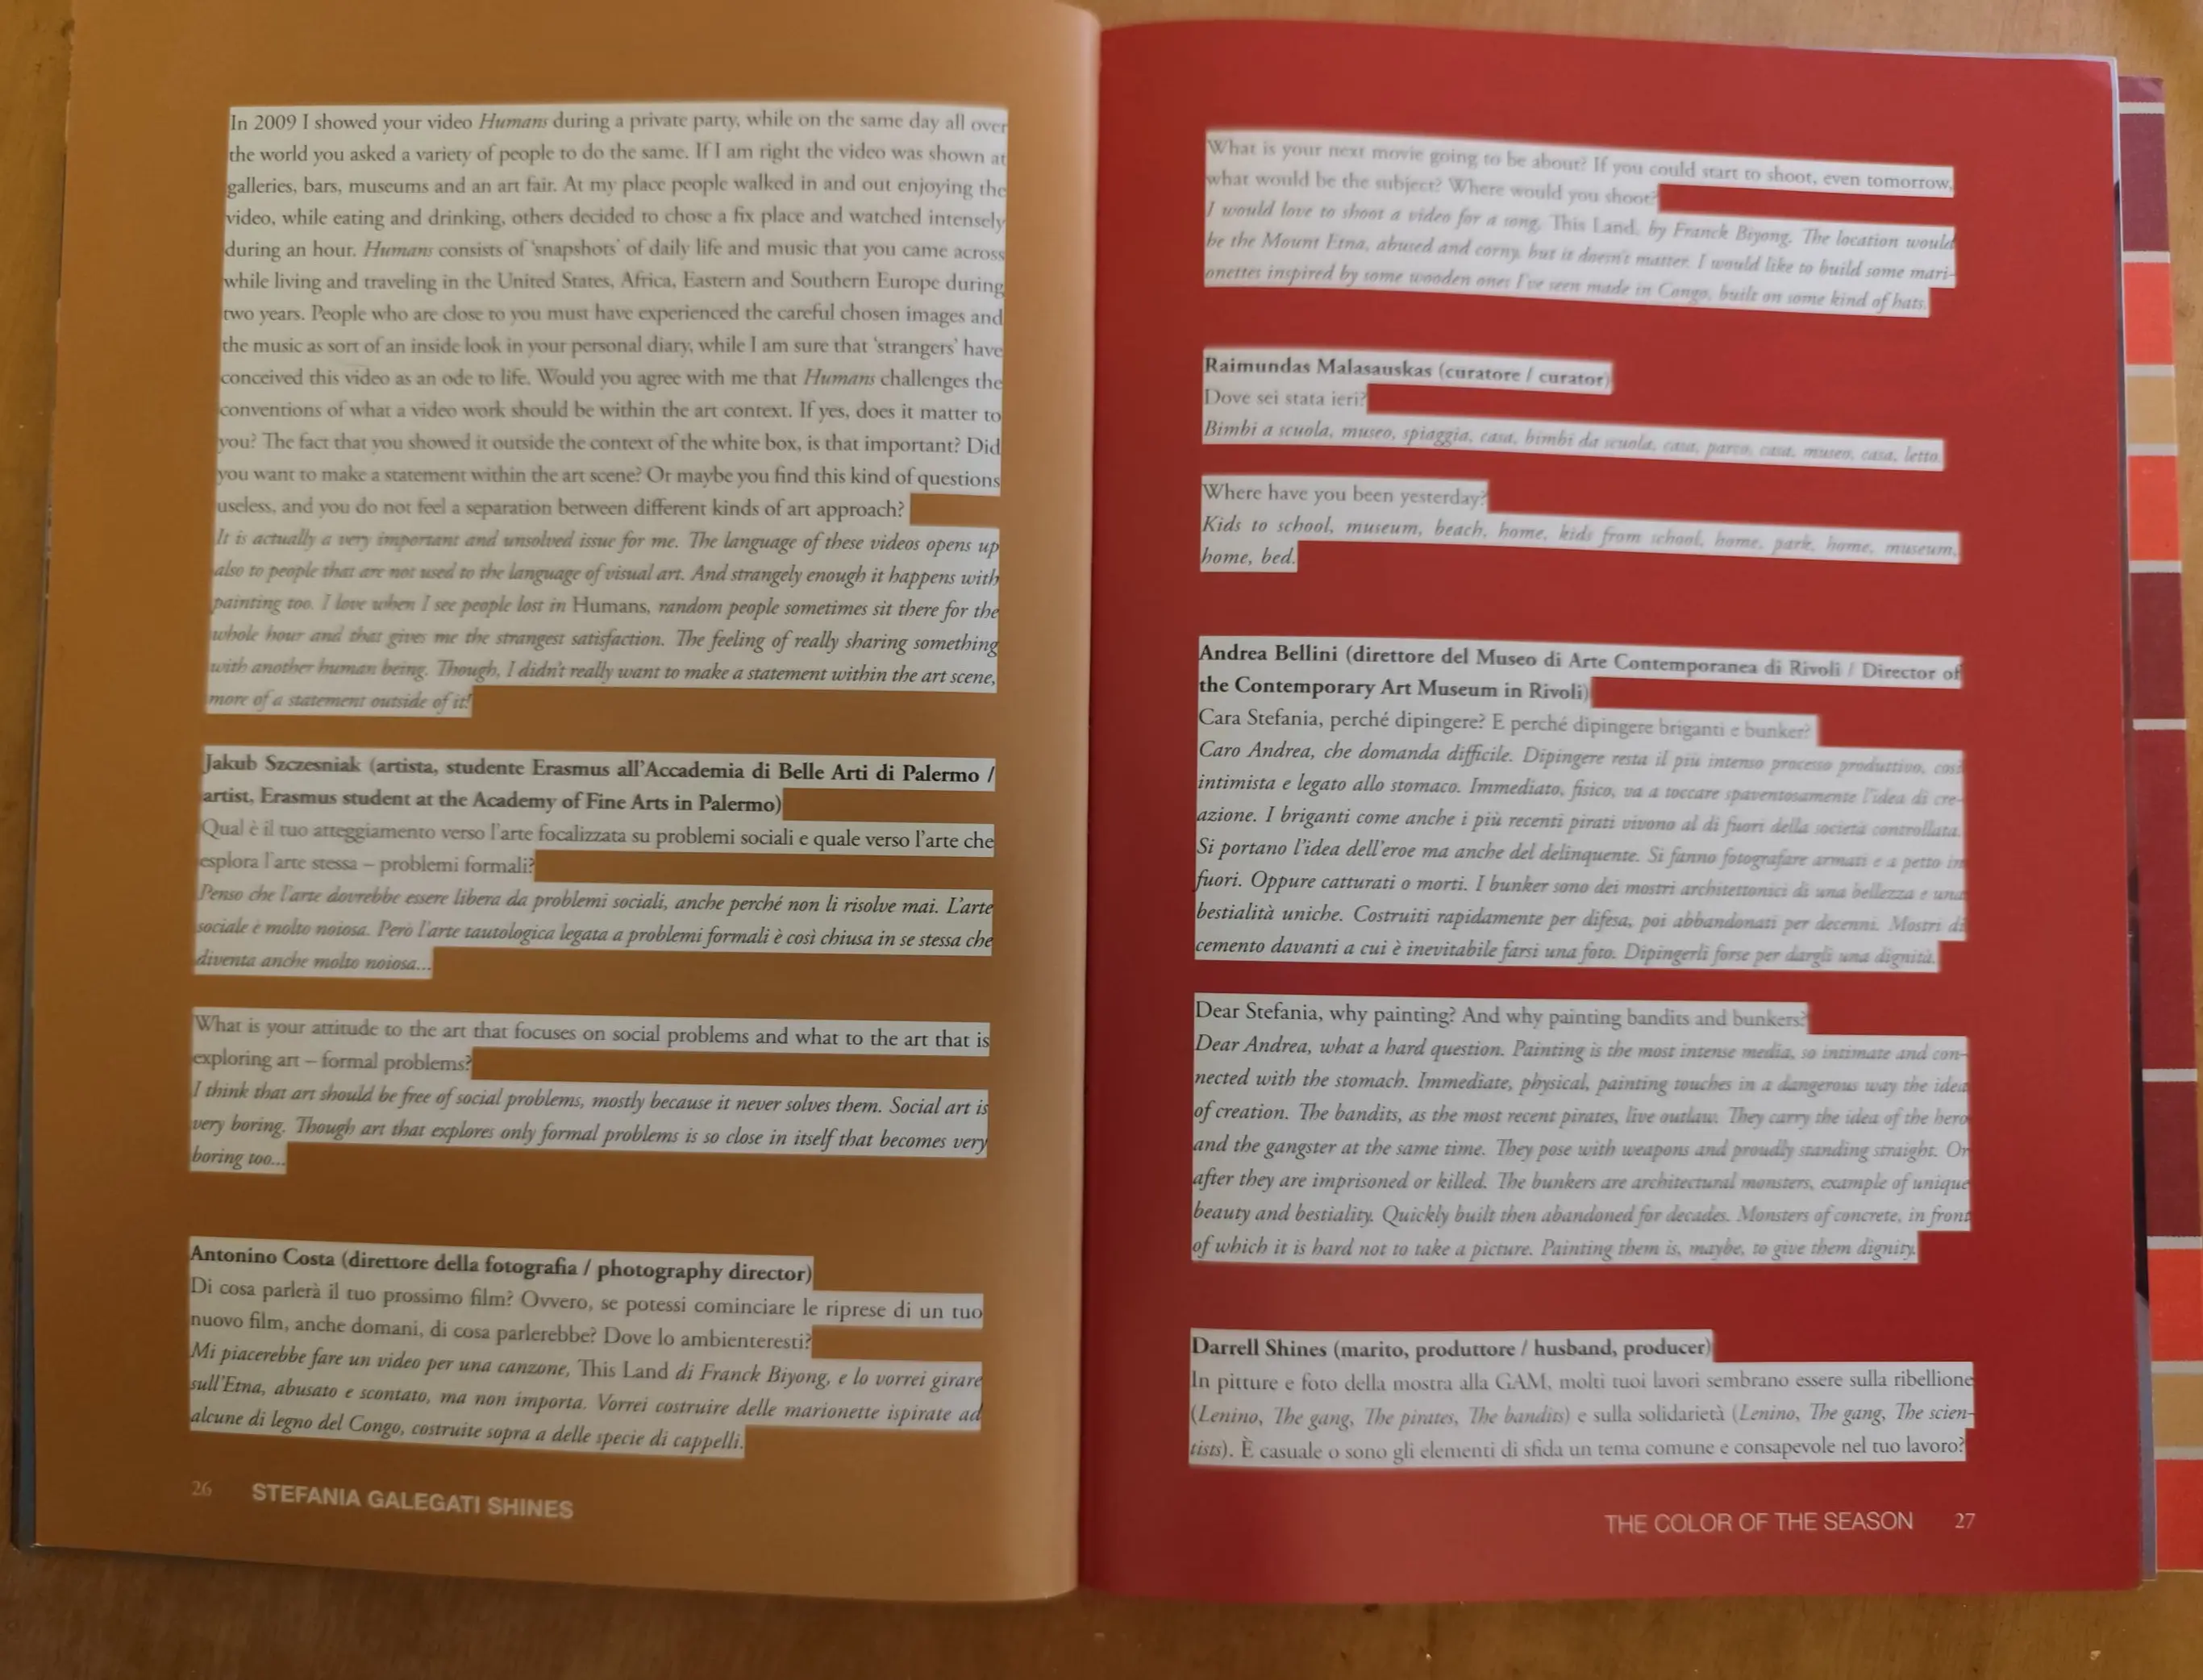 In 2009 I showed your video Humans during a private party, while on the same day all over
the world you asked a variety of people to do the same. If I am right the video was shown at
galleries, bars, museums and an art fair. At my place people walked in and out enjoying the
video, while eating and drinking, others decided to chose a fix place and watched intensely
during an hour. Humans consists of ‘snapshots’ of daily life and music that you came across
while living and traveling in the United States, Africa, Eastern and Southern Europe during
two years. People who are close to you must have experienced the careful chosen images and
the music as sort of an inside look in your personal diary, while I am sure that ‘strangers’ have
conceived this video as an ode to life. Would you agree with me that Humans challenges the
conventions of what a video work should be within the art context. If yes, does it matter to
you? The fact that you showed it outside the context of the white box, is that important? Did
you want to make a statement within the art scene? Or maybe you find this kind of questions
useless, and you do not feel a separation between different kinds of art approach?
It is actually a very important and unsolved issue for me. The language of these videos opens up
also to people that are not used to the language of visual art. And strangely enough it happens with
painting too. I love when I see people lost in Humans, random people sometimes sit there for the
whole hour and that gives me the strangest satisfaction. The feeling of really sharing something
with another human being. Though, I didn’t really want to make a statement within the art scene,
more of a statement outside of it!
Jakub Szczesniak (artista, studente Erasmus all’Accademia di Belle Arti di Palermo /
artist, Erasmus student at the Academy of Fine Arts in Palermo)
Qual è il tuo atteggiamento verso l’arte focalizzata su problemi sociali e quale verso l’arte che
esplora l’arte stessa – problemi formali?
Penso che l’arte dovrebbe essere libera da problemi sociali, anche perché non li risolve mai. L’arte
sociale è molto noiosa. Però l’arte tautologica legata a problemi formali è così chiusa in se stessa che
diventa anche molto noiosa...
What is your attitude to the art that focuses on social problems and what to the art that is
exploring art – formal problems?
I think that art should be free of social problems, mostly because it never solves them. Social art is
very boring. Though art that explores only formal problems is so close in itself that becomes very
boring too...
Antonino Costa (direttore della fotografia / photography director)
Di cosa parlerà il tuo prossimo film? Ovvero, se potessi cominciare le riprese di un tuo
nuovo film, anche domani, di cosa parlerebbe? Dove lo ambienteresti?
Mi piacerebbe fare un video per una canzone, This Land di Franck Biyong, e lo vorrei girare
sull’Etna, abusato e scontato, ma non importa. Vorrei costruire delle marionette ispirate ad
alcune di legno del Congo, costruite sopra a delle specie di cappelli.
26 STEFANIA GALEGATI SHINES
What is your next movie going to be about? If you could start to shoot, even tomorrow,
what would be the subject? Where would you shoot?
I would love to shoot a video for a song, This Land, by Franck Biyong. The location would
be the Mount Etna, abused and corny, but it doesn’t matter. I would like to build some mari-
onettes inspired by some wooden ones I’ve seen made in Congo, built on some kind of hats.
Raimundas Malasauskas (curatore / curator)
Dove sei stata ieri?
Bimbi a scuola, museo, spiaggia, casa, bimbi da scuola, casa, parco, casa, museo, casa, letto.
Where have you been yesterday?
Kids to school, museum, beach, home, kids from school, home, park, home, museum,
home, bed.
Andrea Bellini (direttore del Museo di Arte Contemporanea di Rivoli / Director of
the Contemporary Art Museum in Rivoli)
Cara Stefania, perché dipingere? E perché dipingere briganti e bunker?
Caro Andrea, che domanda difficile. Dipingere resta il più intenso processo produttivo, così
intimista e legato allo stomaco. Immediato, fisico, va a toccare spaventosamente l’idea di cre-
azione. I briganti come anche i più recenti pirati vivono al di fuori della società controllata.
Si portano l’idea dell’eroe ma anche del delinquente. Si fanno fotografare armati e a petto in
fuori. Oppure catturati o morti. I bunker sono dei mostri architettonici di una bellezza e una
bestialità uniche. Costruiti rapidamente per difesa, poi abbandonati per decenni. Mostri di
cemento davanti a cui è inevitabile farsi una foto. Dipingerli forse per dargli una dignità.
Dear Stefania, why painting? And why painting bandits and bunkers?
Dear Andrea, what a hard question. Painting is the most intense media, so intimate and con-
nected with the stomach. Immediate, physical, painting touches in a dangerous way the idea
of creation. The bandits, as the most recent pirates, live outlaw. They carry the idea of the hero
and the gangster at the same time. They pose with weapons and proudly standing straight. Or
after they are imprisoned or killed. The bunkers are architectural monsters, example of unique
beauty and bestiality. Quickly built then abandoned for decades. Monsters of concrete, in front
of which it is hard not to take a picture. Painting them is, maybe, to give them dignity.
Darrell Shines (marito, produttore / husband, producer)
In pitture e foto della mostra alla GAM, molti tuoi lavori sembrano essere sulla ribellione
(Lenino, The gang, The pirates, The bandits) e sulla solidarietà (Lenino, The gang, The scien-
tists). È casuale o sono gli elementi di sfida un tema comune e consapevole nel tuo lavoro?
THE COLOR OF THE SEASON 27